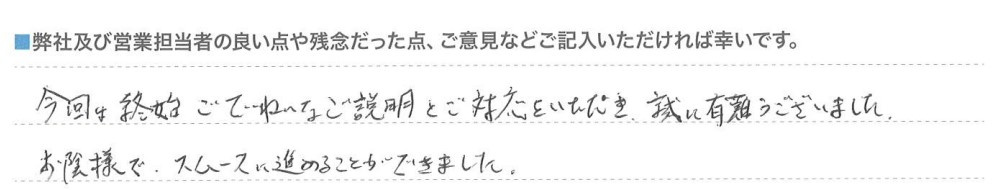 ■弊社及び営業担当者の良い点や残念だった点、ご意見などご記入いただければ幸いです。
今回は終始ごてーねいなご説明とご対応をいただき、誠に有難うございました。
お陰様で、スムースに進めることができました。